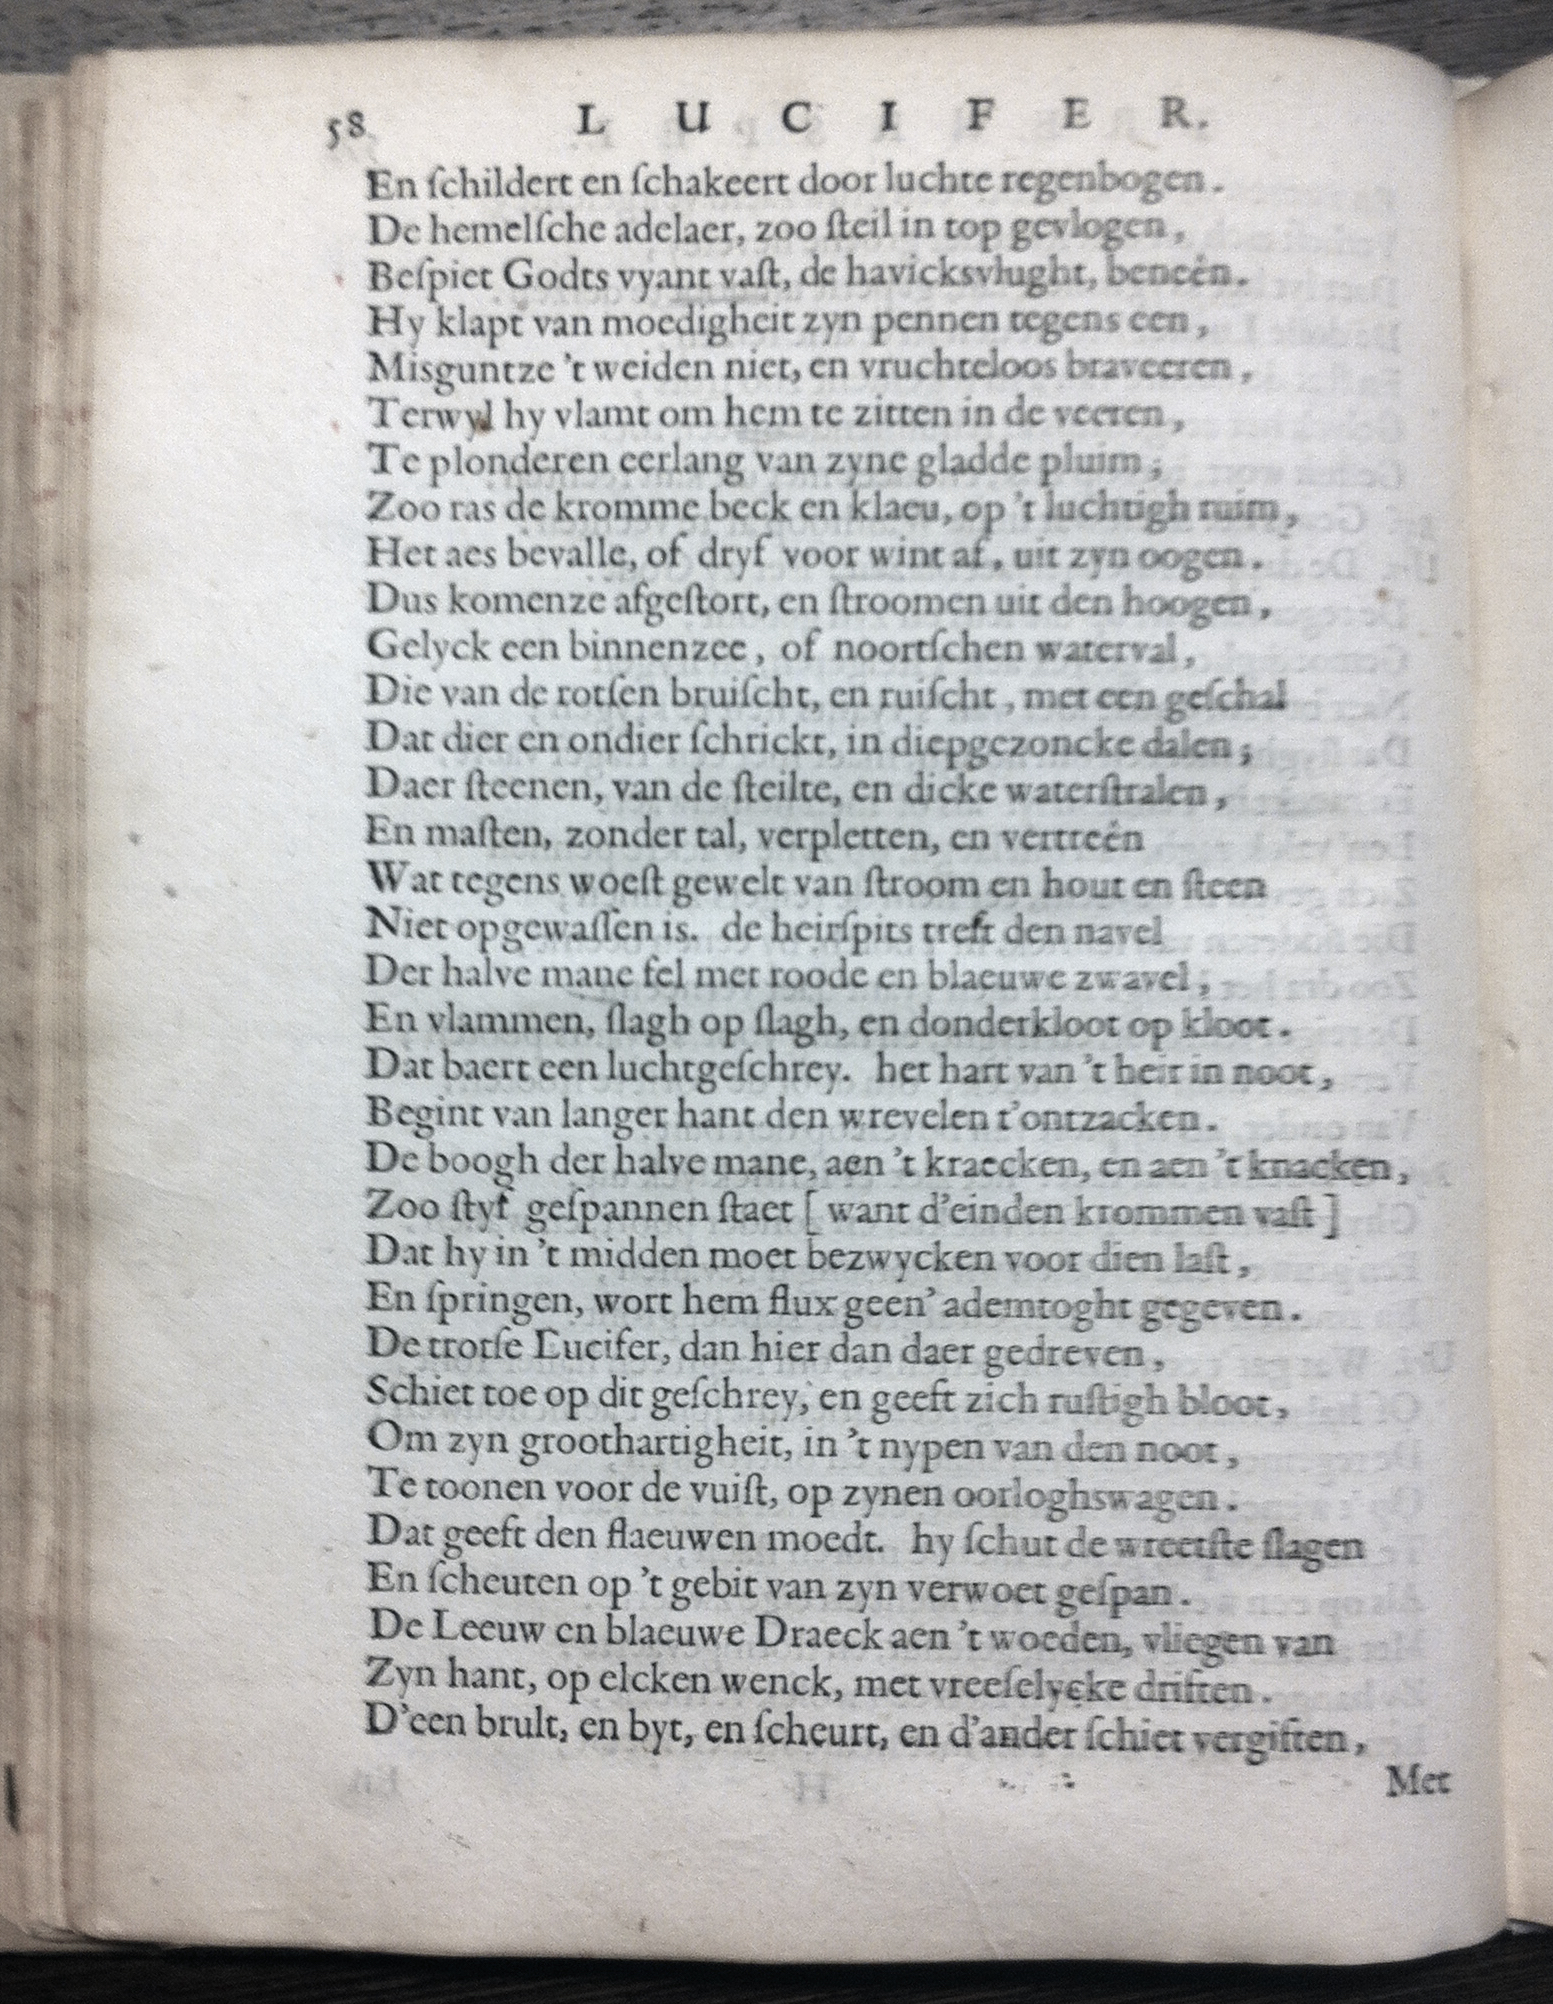 58 LUCIFER.
En ſchildert en ſchakeert door luchte regenbogen.
De hemelſche adelaer, zoo ſteil in top gevlogen,
Beſpiet Godts vyant vaſt, de havicksvlught, beneên.
Hy klapt van moedigheit zyn pennen tegens een,
Misguntze 't weiden niet, en vruchteloos braveeren,
Terwyl hy vlamt om hem te zitten in de veeren,
Te plonderen eerlang van zyne gladde pluim;
Zoo ras de kromme beck en klaeu, op 't luchtigh ruim,
Het aes bevalle, of dryf voor wint af, uit zyn oogen.
Dus komenze afgeſtort, en ſtroomen uit den hoogen,
Gelyck een binnenzee, of noortſchen waterval,
Die van de rotſen bruiſcht, en ruiſcht, met een geſchal
Dat dier en ondier ſchrickt, in diepgezoncke dalen;
Daer ſteenen, van de ſteilte, en dicke waterſtralen,
En maſten, zonder tal, verpletten, en vertreên
Wat tegens woeſt gewelt van ſtroom en hout en ſteen
Niet opgewaſſen is. de heirſpits treft den navel
Der halve mane fel met roode en blaeuwe zwavel,
En vlammen, ſlagh op ſlagh, en donderkloot op kloot.
Dat baert een luchtgeſchrey. het hart van 't heir in noot,
Begint van langer hant den wrevelen t'ontzacken.
De boogh der halve mane, aen 't kraecken, en aen 't knacken,
Zoo ſtyf geſpannen ſtaet [ want d'einden krommen vaſt ]
Dat hy in 't midden moet bezwycken voor dien laſt,
En ſpringen, wort hem flux geen' ademtoght gegeven.
De trotſe Lucifer, dan hier dan daer gedreven,
Schiet toe op dit geſchrey, en geeft zich ruſtigh bloot,
Om zyn groothartigheit, in 't nypen van den noot,
Te toonen voor de vuiſt, op zynen oorloghswagen.
Dat geeft den flaeuwen moedt. hy ſchut de wreetſte ſlagen
En ſcheuten op 't gebit van zyn verwoet geſpan.
De Leeuw en blaeuwe Draeck aen 't woeden, vliegen van
Zyn hant, op elcken wenck, met vreeſelycke driften.
D'een brult, en byt, en ſcheurt, en d'ander ſchiet vergiften,
Met